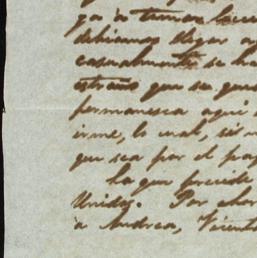 ga a tomar
debiamos llegar a
casualmente se ha
estraño que se que
permanesca aqui
irme, lo cual, si
que sea por el pa
lo que precide
Unidos. Por ahor
a Andrea, Vicent